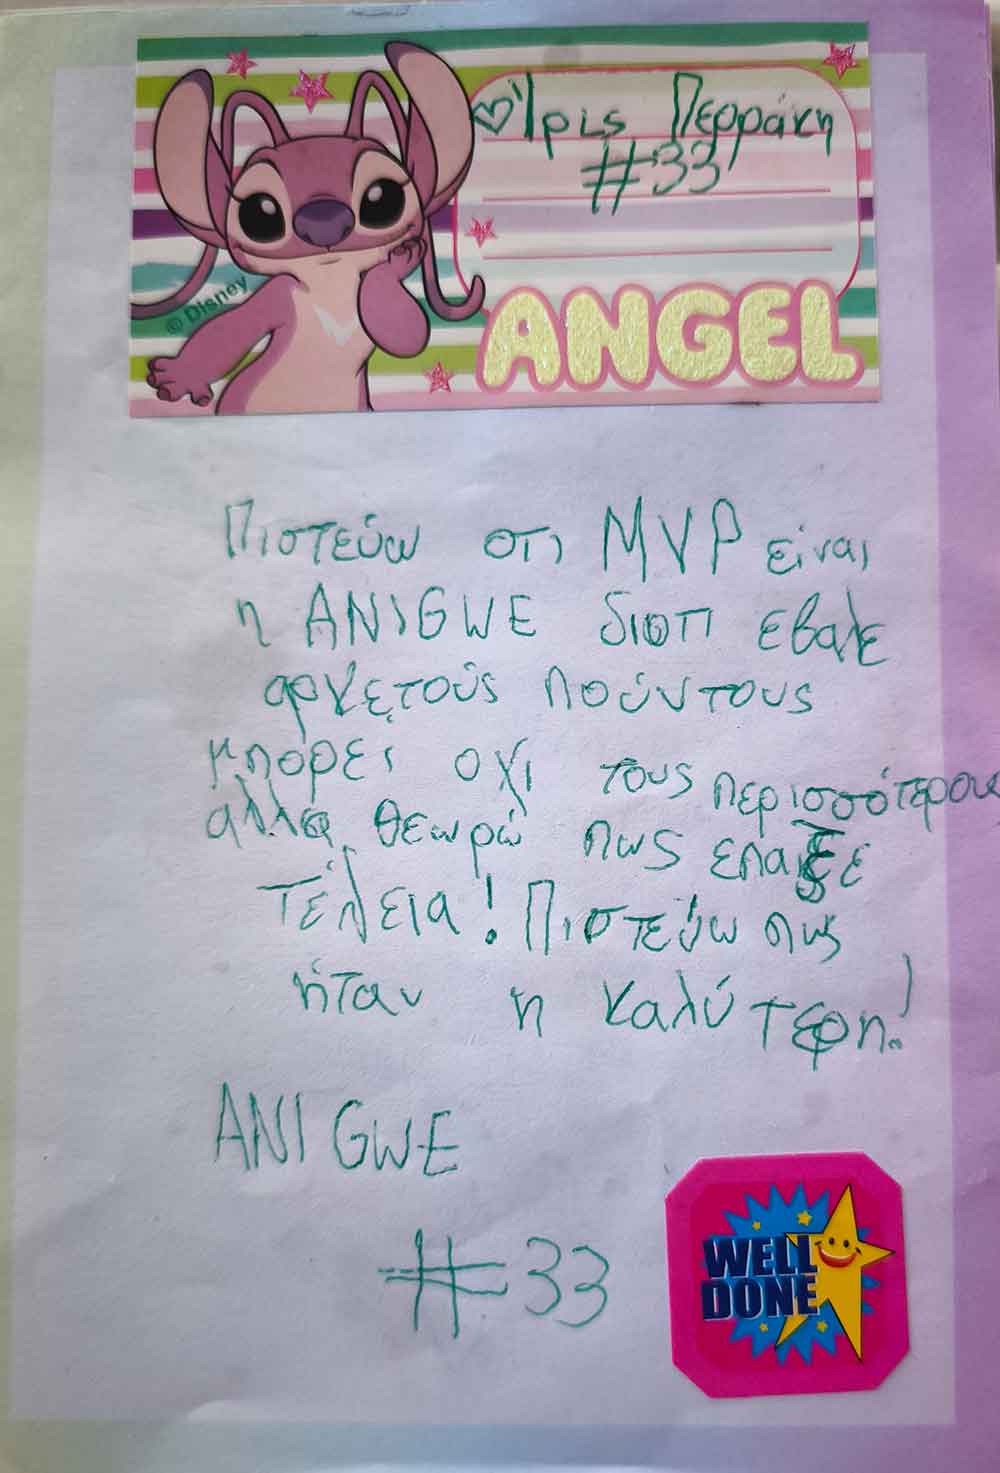 ♡ Ίρις Περράκη
#33
© Disney
ANGEL
Πιστεύω οτι MVP είναι
η ANIGWE διοτι εβαλε
αρκετούς πούντους
μπόρει οχι τους περισσότερους
αλλα θεωρώ πως επαιξε
τέλεια! Πιστεύω πως
ήταν η καλύτερη!
ANIGWE
#33
WELL
DONE